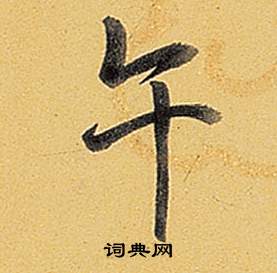 午
词典网